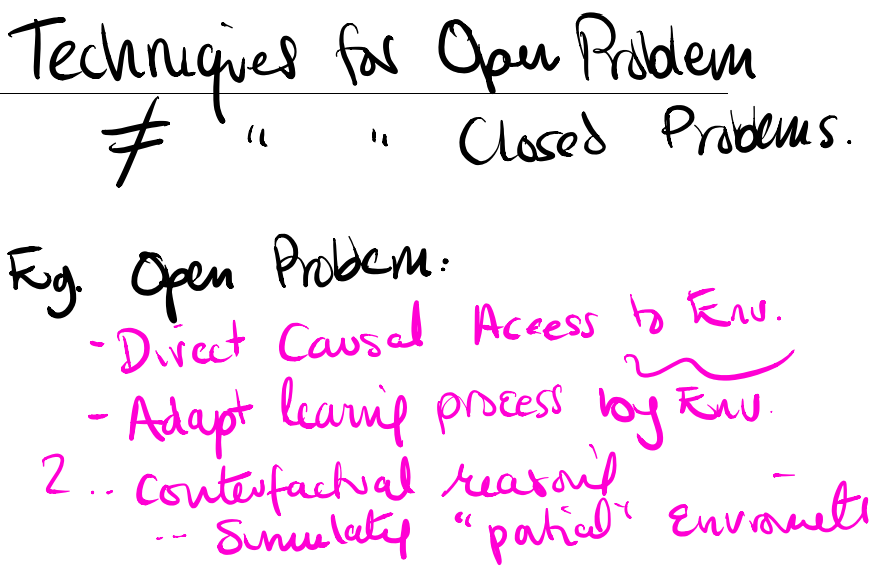 Techniques for Open Problem
≠ " " Closed Problems.
Eg. Open Problem:
- Direct Causal Access to Env.
- Adapt learning process by Env.
2 .. Counterfactual reasoning
-- Simulating "partial" Enviroments